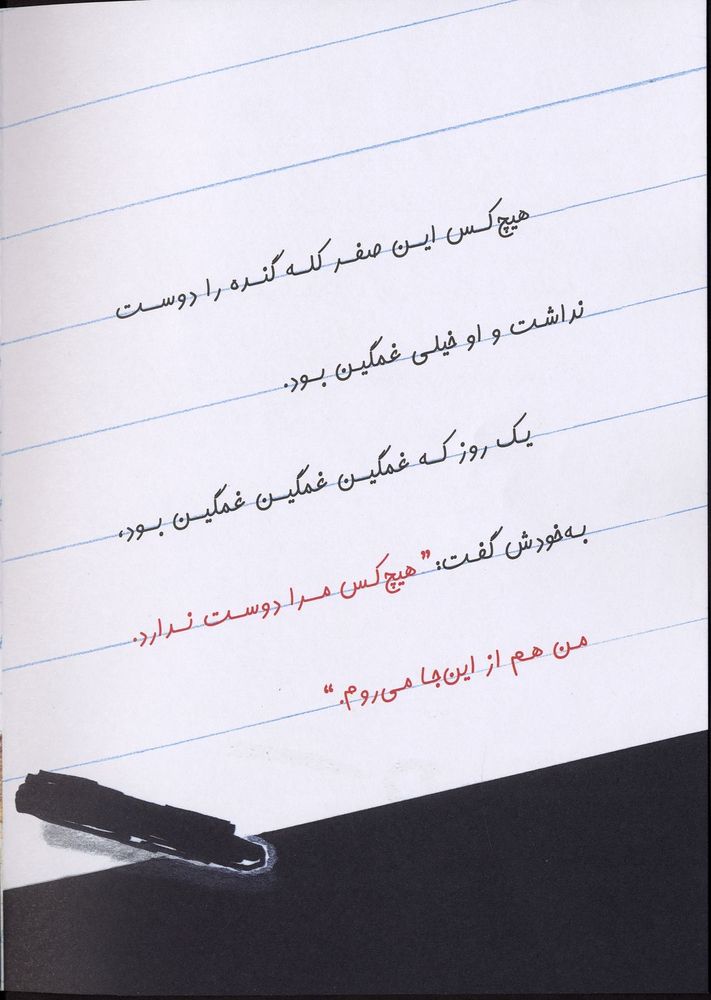 هیچ‌کس این صفر کله گنده را دوست
نداشت و او خیلی غمگین بود.
یک روز که غمگین غمگین غمگین بود،
به‌خودش گفت: "هیچ‌کس مرا دوست ندارد.
من هم از این‌جا می‌روم."